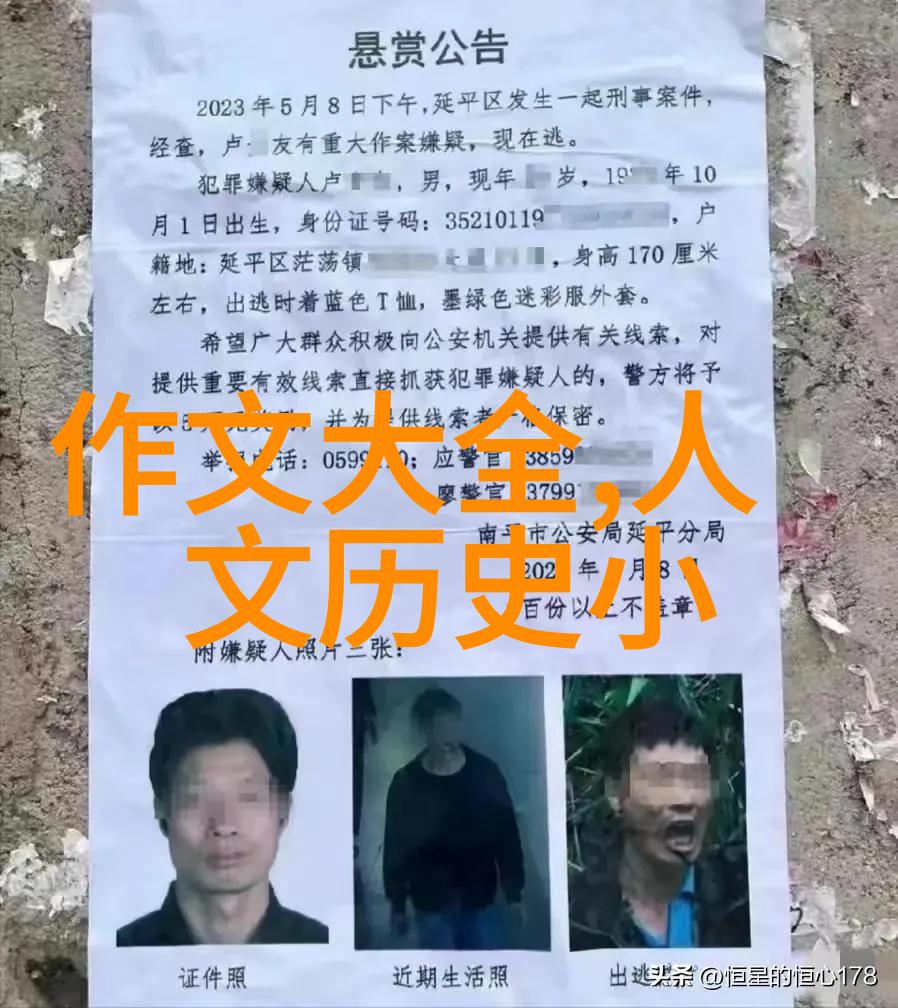 悬赏公告
2023年5月8日下午,延平区发生一起刑事案件,
经查,卢 友有重大作案嫌疑,现在逃。
犯罪嫌疑人卢 ,男,现年 岁,19 年10
月1日出生,身份证号码:35210119 ,户
籍地:延平区茫荡镇 ,身高170厘米
左右,出逃时着蓝色T恤,墨绿色迷彩服外套。
希望广大群众积极向公安机关提供有关线索,对
提供重要有效线索直接抓获犯罪嫌疑人的,警方将予
并为提供线索者 保密。
举报电话:0599 0;应警官 3859
廖警官 3799
作文大全,人
文历史小
南平市公安局延平分局
202 年 月8日
百份以上不盖章
附嫌疑人照片三张:
证件照
近期生活照
出逃
头条 @恒星的恒心178